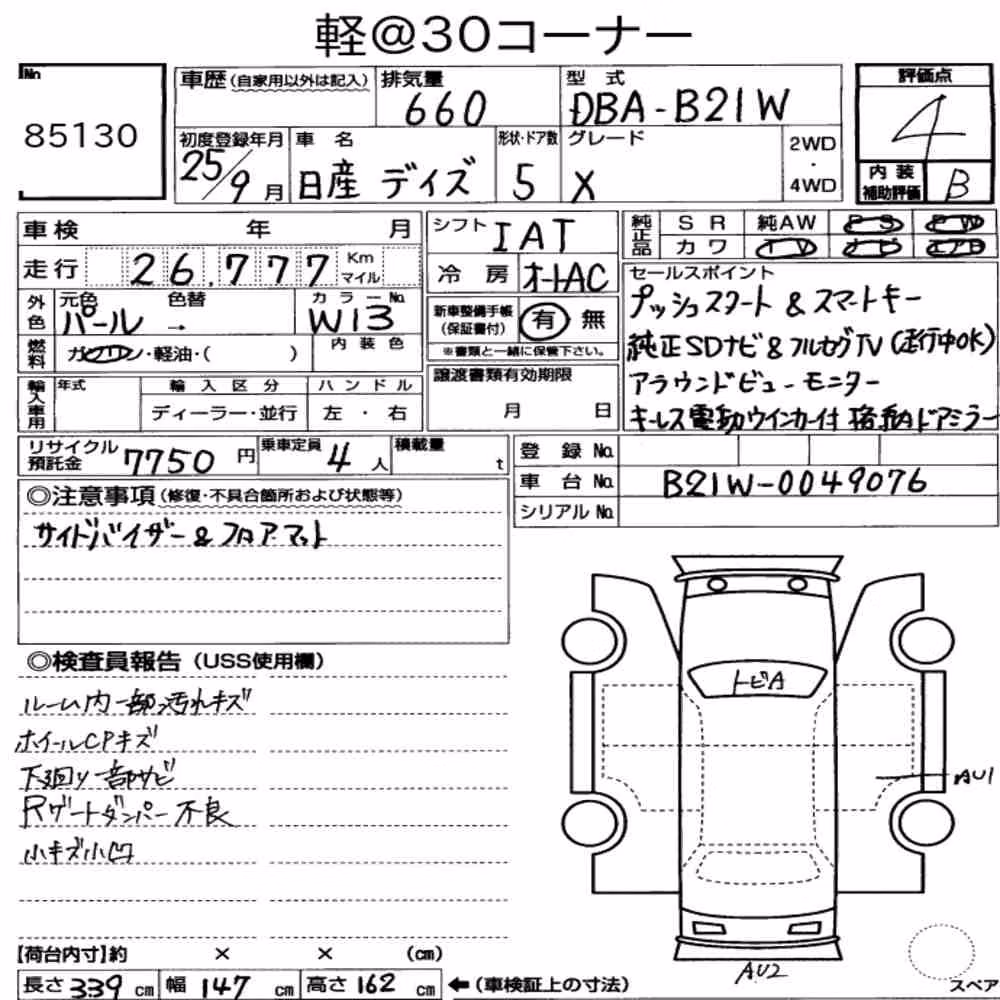 軽@30コーナー
No
85130
車歴(自家用以外は記入)
排気量
660
型 式
DBA-B21W
評価点
4
初度登録年月
25/9月
車 名
日産 デイズ
形状・ドア数
5
グレード
X
2WD
・
4WD
内 装
補助評価
B
車検 年 月
シフト
IAT
純正品
SR 純AW PS PW
カワ TV ナビ エアB
走行 26,777 Km
マイル
冷 房
オートAC
外色
元色 色替
パール →
カラーNo.
W13
新車整備手帳
(保証書付)
有 無
※書類と一緒に保管下さい。
セールスポイント
プッシュスタート & スマートキー
純正SDナビ&フルセグTV(走行中OK)
アラウンドビューモニター
キーレス電動ウインカー付 格納ドアミラー
燃料
ガソリン・軽油・( )
内 装 色
輸入車用
年式
輸 入 区 分
ディーラー・並行
ハ ン ド ル
左 ・ 右
譲渡書類有効期限
月 日
リサイクル
預託金
7750 円
乗車定員
4 人
積載量
t
登 録 No.
車 台 No. B21W-0049076
シリアル No.
◎注意事項(修復・不具合箇所および状態等)
サイドバイザー & フロアマット
◎検査員報告(USS使用欄)
ルーム内一部汚れキズ
ホイールCPキズ
下廻り一部サビ
Rゲートダンパー不良
小キズ小凹
トビA
AU1
AU2
スペア
【荷台内寸】約 × × (cm)
長さ 339 cm 幅 147 cm 高さ 162 cm ←(車検証上の寸法)